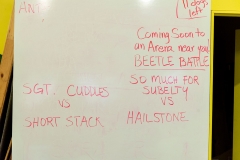 ANT
11 days
left
Coming Soon to
an Arena near you
BEETLE BATTLE
SGT. CUDDLES
VS
SHORT STACK
SO MUCH FOR
SUBELTY
VS
HAILSTONE